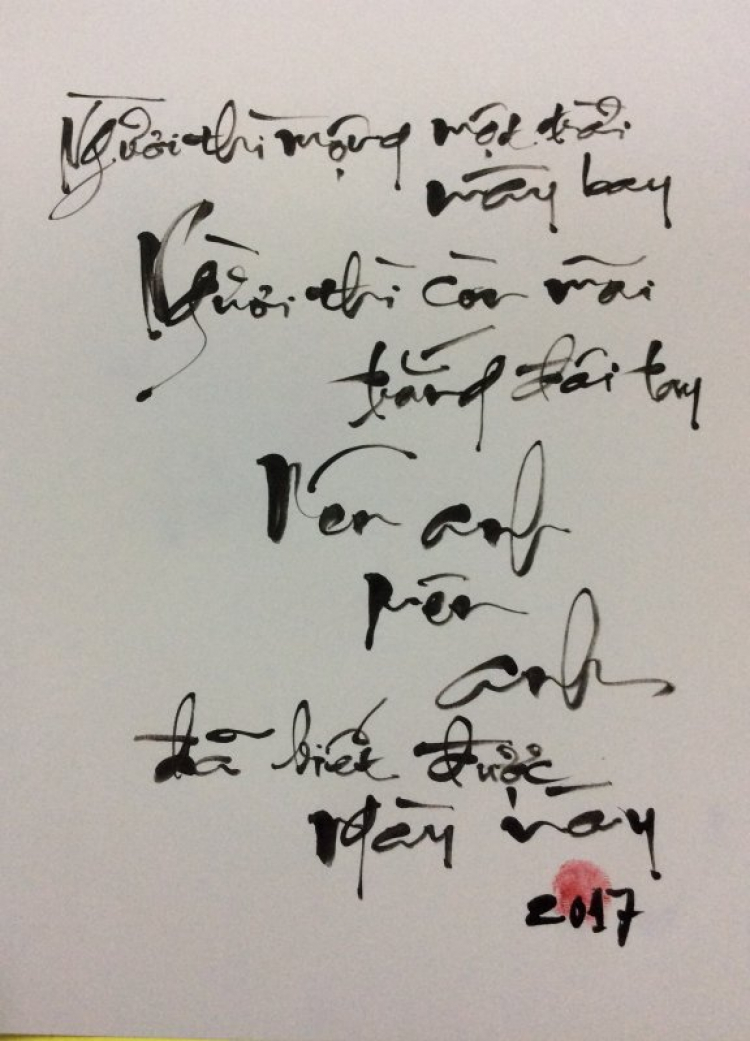 Người thì mộng một trời
mây bay
Người thì còn mãi
trắng đôi tay
Nên anh
nên
anh
đã biết được
ngày này
2017